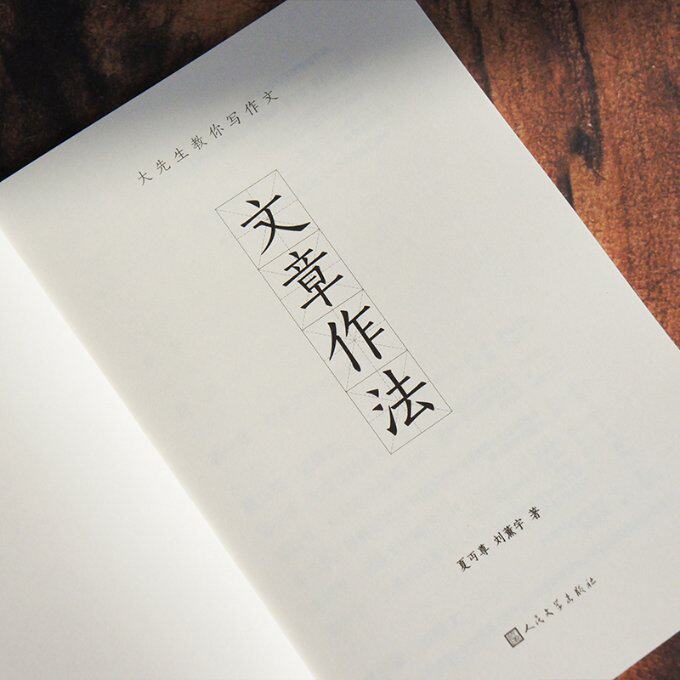 大先生教你写作文
文章作法
夏丏尊 刘薰宇 著
人民文学出版社